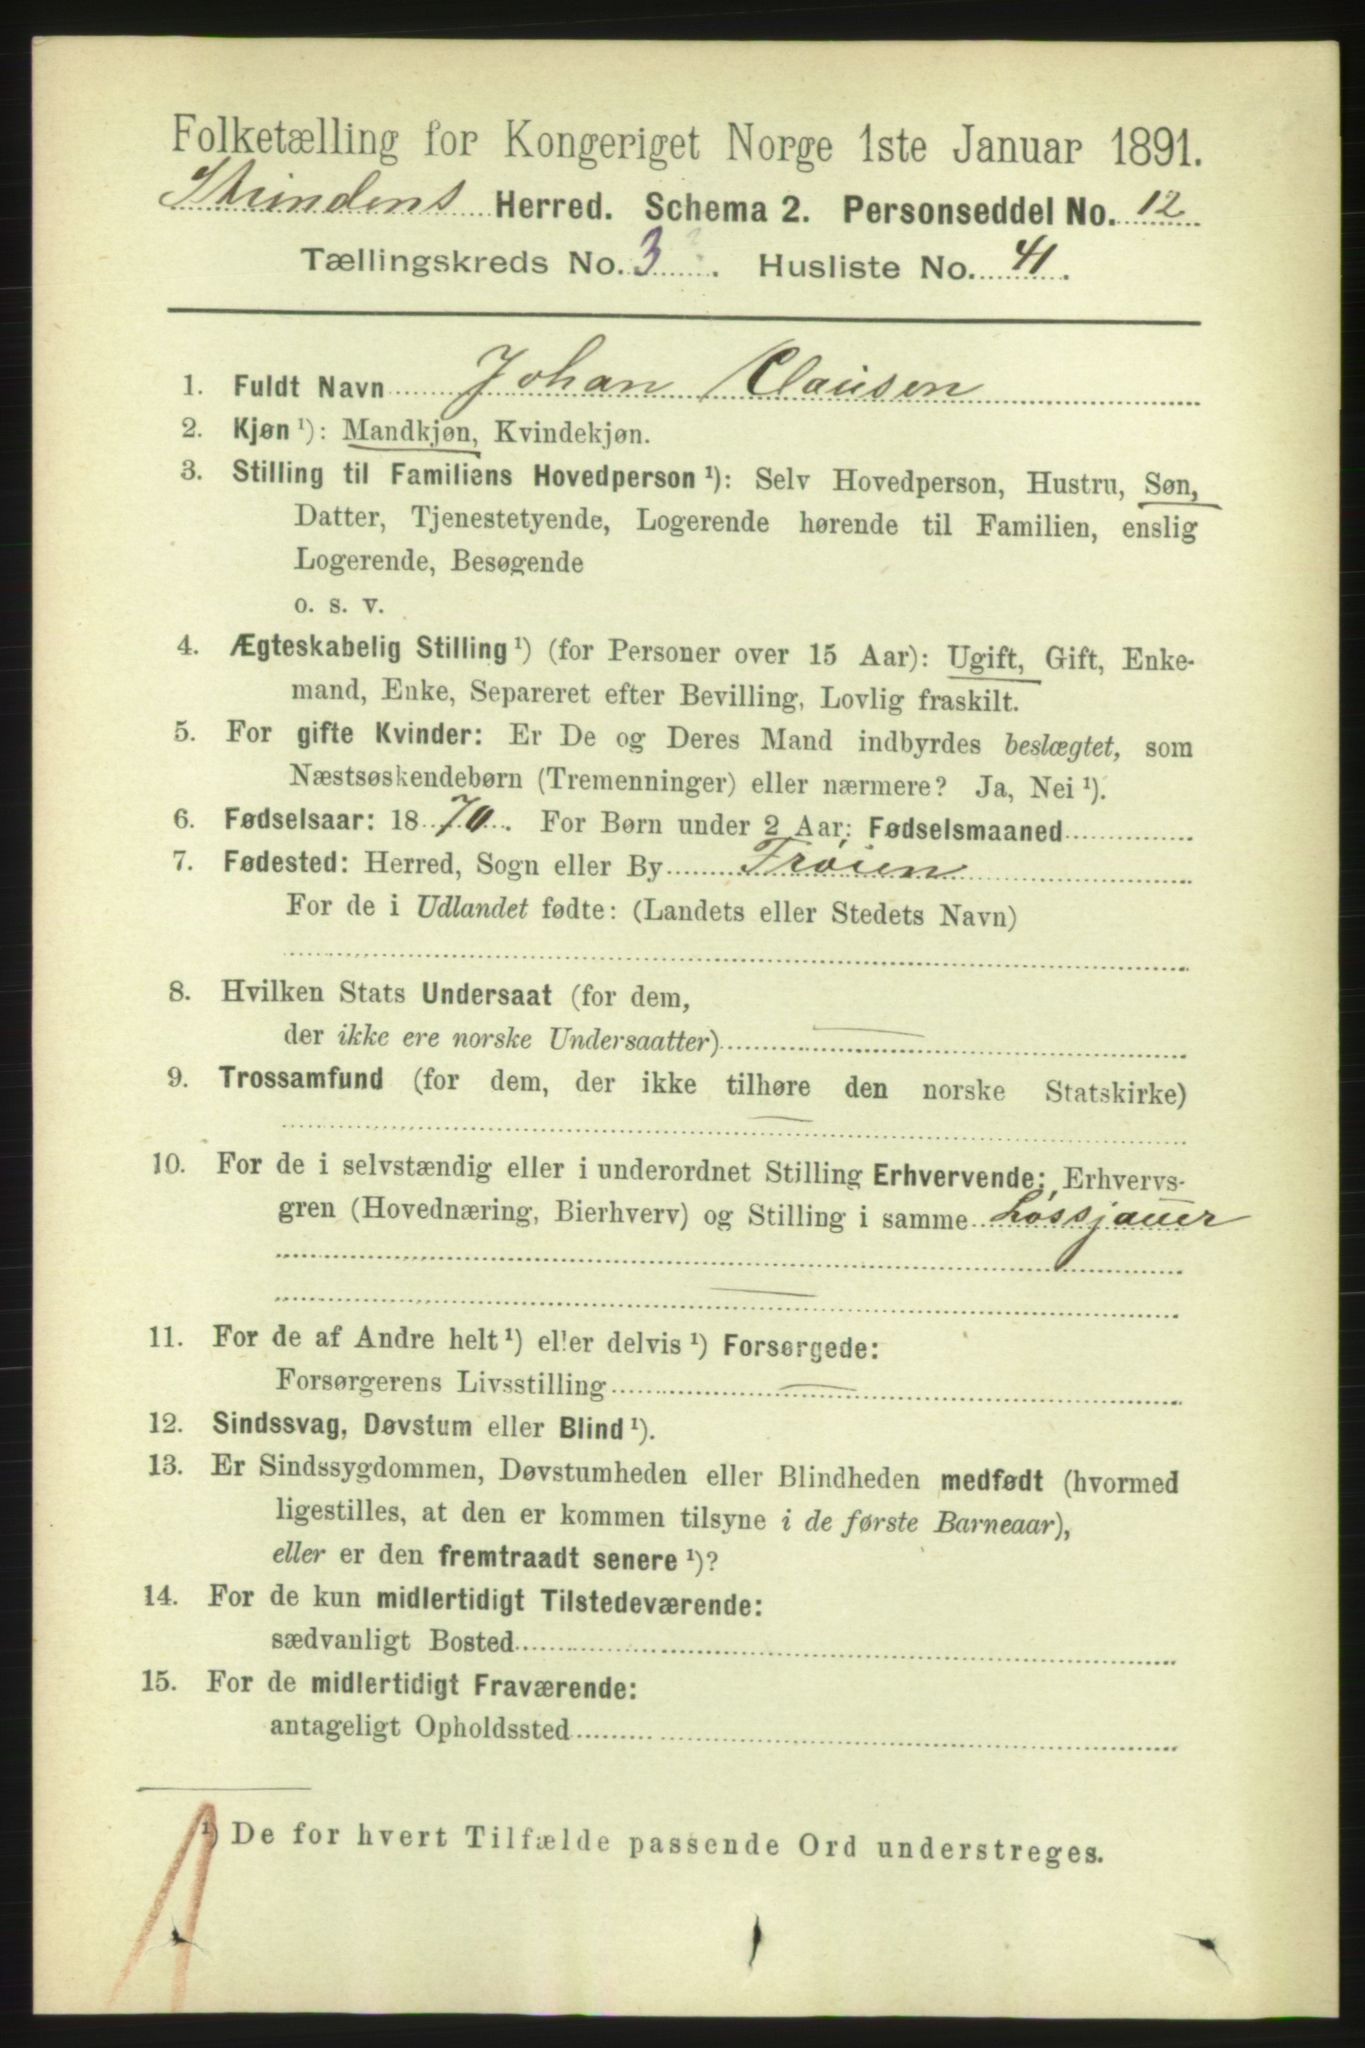 Folketælling for Kongeriget Norge 1ste Januar 1891.
Strindens Herred. Schema 2. Personseddel No. 12
Tællingskreds No. 3. Husliste No. 41.
1. Fuldt Navn Johan Clausen
2. Kjøn ¹): Mandkjøn, Kvindekjøn.
3. Stilling til Familiens Hovedperson ¹): Selv Hovedperson, Hustru, Søn,
Datter, Tjenestetyende, Logerende hørende til Familien, enslig
Logerende, Besøgende
o. s. v.
4. Ægteskabelig Stilling ¹) (for Personer over 15 Aar): Ugift, Gift, Enke-
mand, Enke, Separeret efter Bevilling, Lovlig fraskilt.
5. For gifte Kvinder: Er De og Deres Mand indbyrdes beslægtet, som
Næstsøskendebørn (Tremenninger) eller nærmere? Ja, Nei ¹).
6. Fødselsaar: 1870. For Børn under 2 Aar: Fødselsmaaned
7. Fødested: Herred, Sogn eller By Trøien
For de i Udlandet fødte: (Landets eller Stedets Navn)
8. Hvilken Stats Undersaat (for dem,
der ikke ere norske Undersaatter)
9. Trossamfund (for dem, der ikke tilhøre den norske Statskirke)
10. For de i selvstændig eller i underordnet Stilling Erhvervende: Erhvervs-
gren (Hovednæring, Bierhverv) og Stilling i samme Løssjauer
11. For de af Andre helt ¹) eller delvis ¹) Forsørgede:
Forsørgerens Livsstilling
12. Sindssvag, Døvstum eller Blind ¹).
13. Er Sindssygdommen, Døvstumheden eller Blindheden medfødt (hvormed
ligestilles, at den er kommen tilsyne i de første Barneaar),
eller er den fremtraadt senere ¹)?
14. For de kun midlertidigt Tilstedeværende:
sædvanligt Bosted
15. For de midlertidigt Fraværende:
antageligt Opholdssted
¹) De for hvert Tilfælde passende Ord understreges.